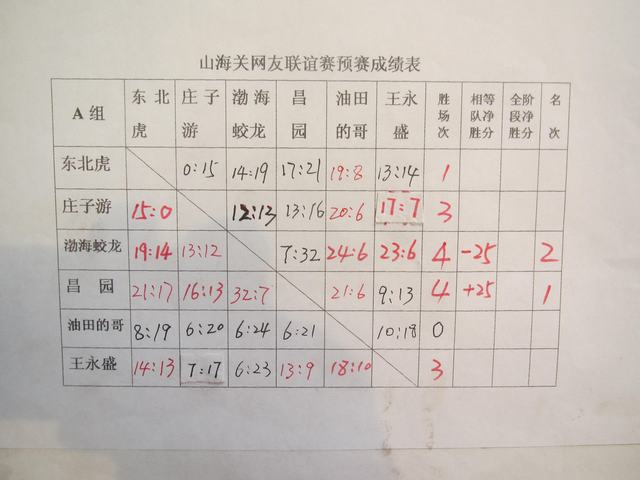 山海关网友联谊赛预赛成绩表
A 组 东北虎 庄子游 渤海蛟龙 昌园 油田的哥 王永盛 胜场次 相等队净胜分 全阶段净胜分 名次
东北虎 0:15 14:19 17:21 19:8 13:14 1
庄子游 15:0 12:13 13:16 20:6 17:7 3
渤海蛟龙 19:14 13:12 7:32 24:6 23:6 4 -25 2
昌 园 21:17 16:13 32:7 21:6 9:13 4 +25 1
油田的哥 8:19 6:20 6:24 6:21 10:18 0
王永盛 14:13 7:17 6:23 13:9 18:10 3